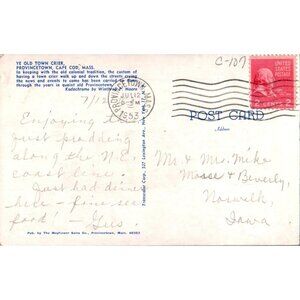 YE OLD TOWN CRIER,
PROVINCETOWN, CAPE COD, MASS.
In keeping with the old colonial tradition, the custom of
having a town crier walk up and down the streets crying
the news and events to come has been carried on down
through the years in quaint old Provincetown.
Kodachrome by Winthrop P. Moore
7/12
Enjoying the
just prodding
along the N.E.
coast line.
Just had dinner
here - fine sea
food! - Gus.
Pub. by The Mayflower Sales Co., Provincetown, Mass.
JUL 12
PM
1953
C-107
UNITED STATES
POSTAGE
2 CENTS 2
POST CARD
Address
Mr & Mr. Mike
Mosse & Beverly,
Norwalk,
Iowa